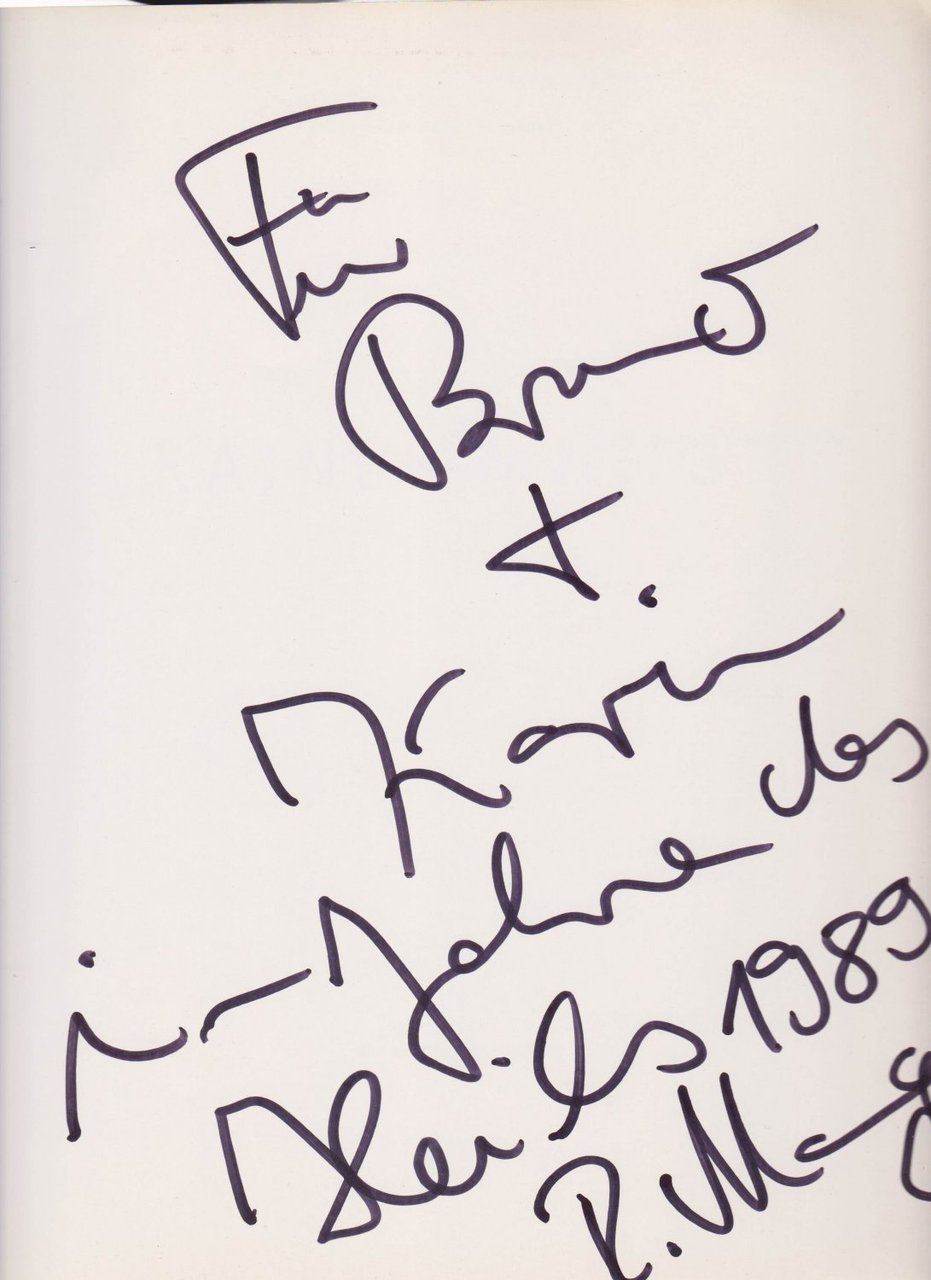 Für
Bruno
+
Karin
im Jahre des
Heils 1989